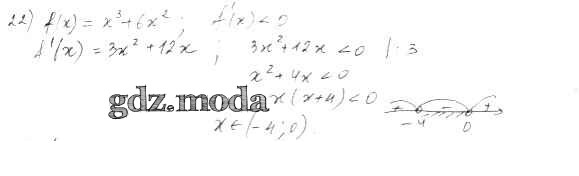 22) f(x) = x³ + 6x² ; f'(x) < 0
f'(x) = 3x² + 12x ; 3x² + 12x < 0 | · 3
x² + 4x < 0
gdz.moda x(x+4) < 0
+ − +
−4 0
x ∈ (−4; 0)